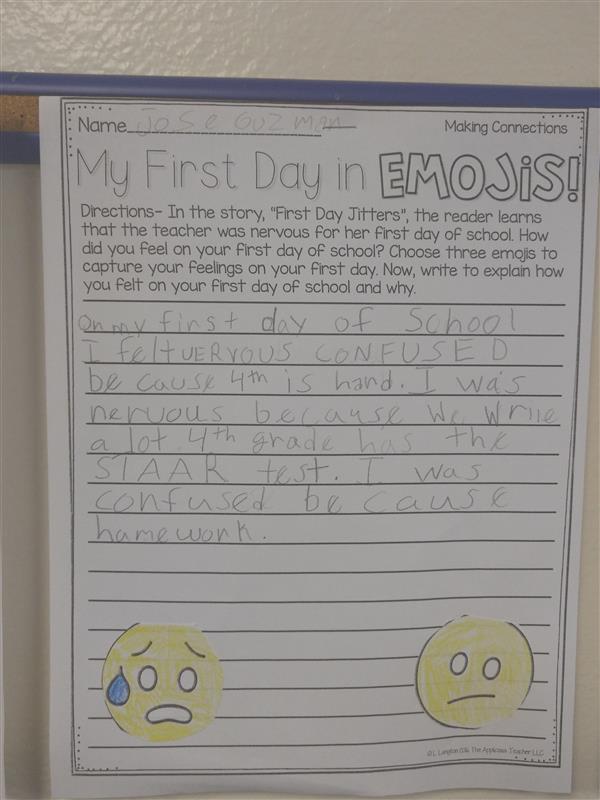 Name Jose Guzman
Making Connections
My First Day in EMOJIS!
Directions- In the story, "First Day Jitters", the reader learns
that the teacher was nervous for her first day of school. How
did you feel on your first day of school? Choose three emojis to
capture your feelings on your first day. Now, write to explain how
you felt on your first day of school and why.
On my first day of School
I felt UERVOUS CONFUSED
be cause 4th is hard. I was
nervous because We Write
a lot. 4th grade has the
STAAR test. I was
confused be cause
hamework.
© L. Langton 2016 The Applicious Teacher LLC